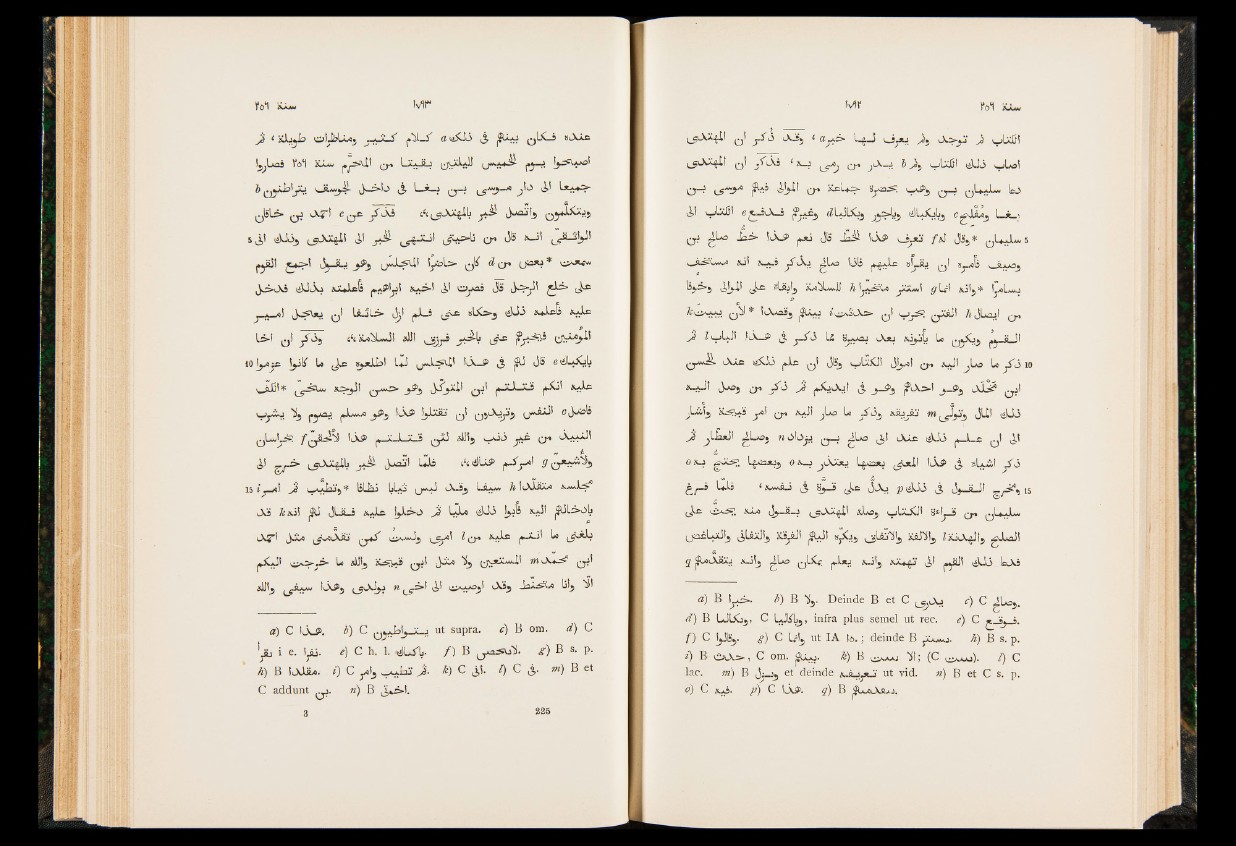 سنة ٢٥٦ ١٧٩٢
الكتاب لم توجد ولم يعرف لها خبر a، وقد ذكر ان المهتدى
اصاب ذلك الكتاب ولم b يدر من رمى به، فذكر ان المهتدى
دعا سليمان بن وهب بحضرة جماعة من الموالى فيهم موسى بن
بغا ومُفْلِح c وبايكباك وياجور وبكالبا d وغيرهم فدفع e الكتاب الى
5 سليمان *وقال له f تعرف هذا الخطّ قال نعم هذا خطّ صالح بن
وصيف فأمره ان يقرأه عليهم فاذا صالح يذكر فيه انه مستخف
بسامرّا *وانه انما g استتر متخيّرا h للسلامة وابقاء على الموالى وخوفا
من ايصال h الفتن بحرب ان حدثت i بينهم وقصدا *لأن يبيت k
القوم ويكون ما يأتونه بعد بصيرة مما ذكر فى هذا الباب l ثم
10 ذكر ما صار اليه من اموال الكتّاب وقال ان علم ذلك عند الحسن
ابن مَخْلَد وهو احدهم وهو فى ايديكم ثم ذكر من وصل اليه
ذلك المال وتولّى m تفريقه وذكر ما صار اليه من امر قبيحة وأشار
الى ان علم ذلك عند ابى صالح بن يزداد n وصالح العطّار ثم
ذكر اشياء فى هذا المعنى بعضها يعتذر به o وبعضها يحتجّ به o
15 ومخرج القول فى ذلك p يدلّ على قوّة فى نفسه، فلمّا فرغ
سليمان من قراءة الكتاب وصله المهتدى بقول منه يحثّ على
الصلح والهدنة l والالفة والاتّفاق ويكرّه اليهم الفرقة والتفانى والتباغض
فدعا ذلك القوم الى تهمته وانه يعلم بمكان صالح وانه يتقدّمهم q
a) B خبرا. b) B ولا. Deinde B et C يدرى c) C وصالح.
d) B , C , infra plus semel ut rec. e) C فوقع.
f) C وقالوا. g) C وانما ut IA ; deinde B h) B s. p.
i) B , C om. بينهم. k) B ; (C ). l) C
lac. m) B et deinde ut vid. n) B et C s. p.
o) C فيه. p) C هذا. q) B
سنة ٢٥٦ ١٧٩٣
عنده فكان بينهم فى ذلك a كلام كثير ومناظرات طويلة، ثم
اصبحوا يوم الخميس لليلتين بقيتا من المحرّم سنة ٢٥٦ فصاروا
جميعا الى دار موسى بن بغا فى داخل الجوسق يتراطنون b
ويتكلّمون واتّصل الخبر بالمهتدى،، فذكر عن c احمد بن خاقان
5 الواثقى انه قال من ناحيتى انتهى الخبر الى المهتدى وذلك انى
سمعت *بعض من d كان حاضرا المجلس وهو يقول اجمع القوم
على خلع الرجل قال فصرت الى اخيه ابراهيم فأعلمته بذلك فدخل
عليه فأعلمه ذلك وحكاه عنى فلم ازل خائفا ان يعجل امير
المؤمنين فيخبرهم عنى بالخبر فرزق الله السلامة،، وذكر ان اخا
10 بايكباك e قال لهم فى هذا المجلس لمّا اطلعوه على ما كانوا عزموا
عليه انكم قتلتم ابن المتوكّل وهو حسن الوجه سخىّ *الكفّ
فاضل e النفس وتريدون ان تقتلوا هذا وهو مسلم يصوم ولا يشرب
النبيذ من غير ذنب والله لئن قتلتم هذا لألحقنّ f بخراسان
ولأشيعنّ g امركم هناك،، فلمّا اتّصل الخبر بالمهتدى خرج الى
15 مجلسه متقلّدا h سيفا وقد لبس ثيابا نظافا *وتطيّب ثم امر i
بادخالهم اليه فأبوا ذلك مليّا ثم دخلوا عليه فقال لهم انه k قد
بلغنى ما انتم عليه من l امرى ولستُ كمن تقدّمنى مثل احمد
ابن محمد m المستعين ولا مثل ابن قبيحة والله ما خرجت اليكم
الّا وانا متحنّط وقد اوصيت الى اخى n بولدى وهذا سيفى والله
a) C هذا. b) C ut supra. c) B om. d) C
i e. نفرا. e) C h. l. باكباك. f) B g) B s. p.
h) B i) C ثم تطيب وامر. k) C الى. l) C فى. m) B et
C addunt بن. n) B احمق.
3 225